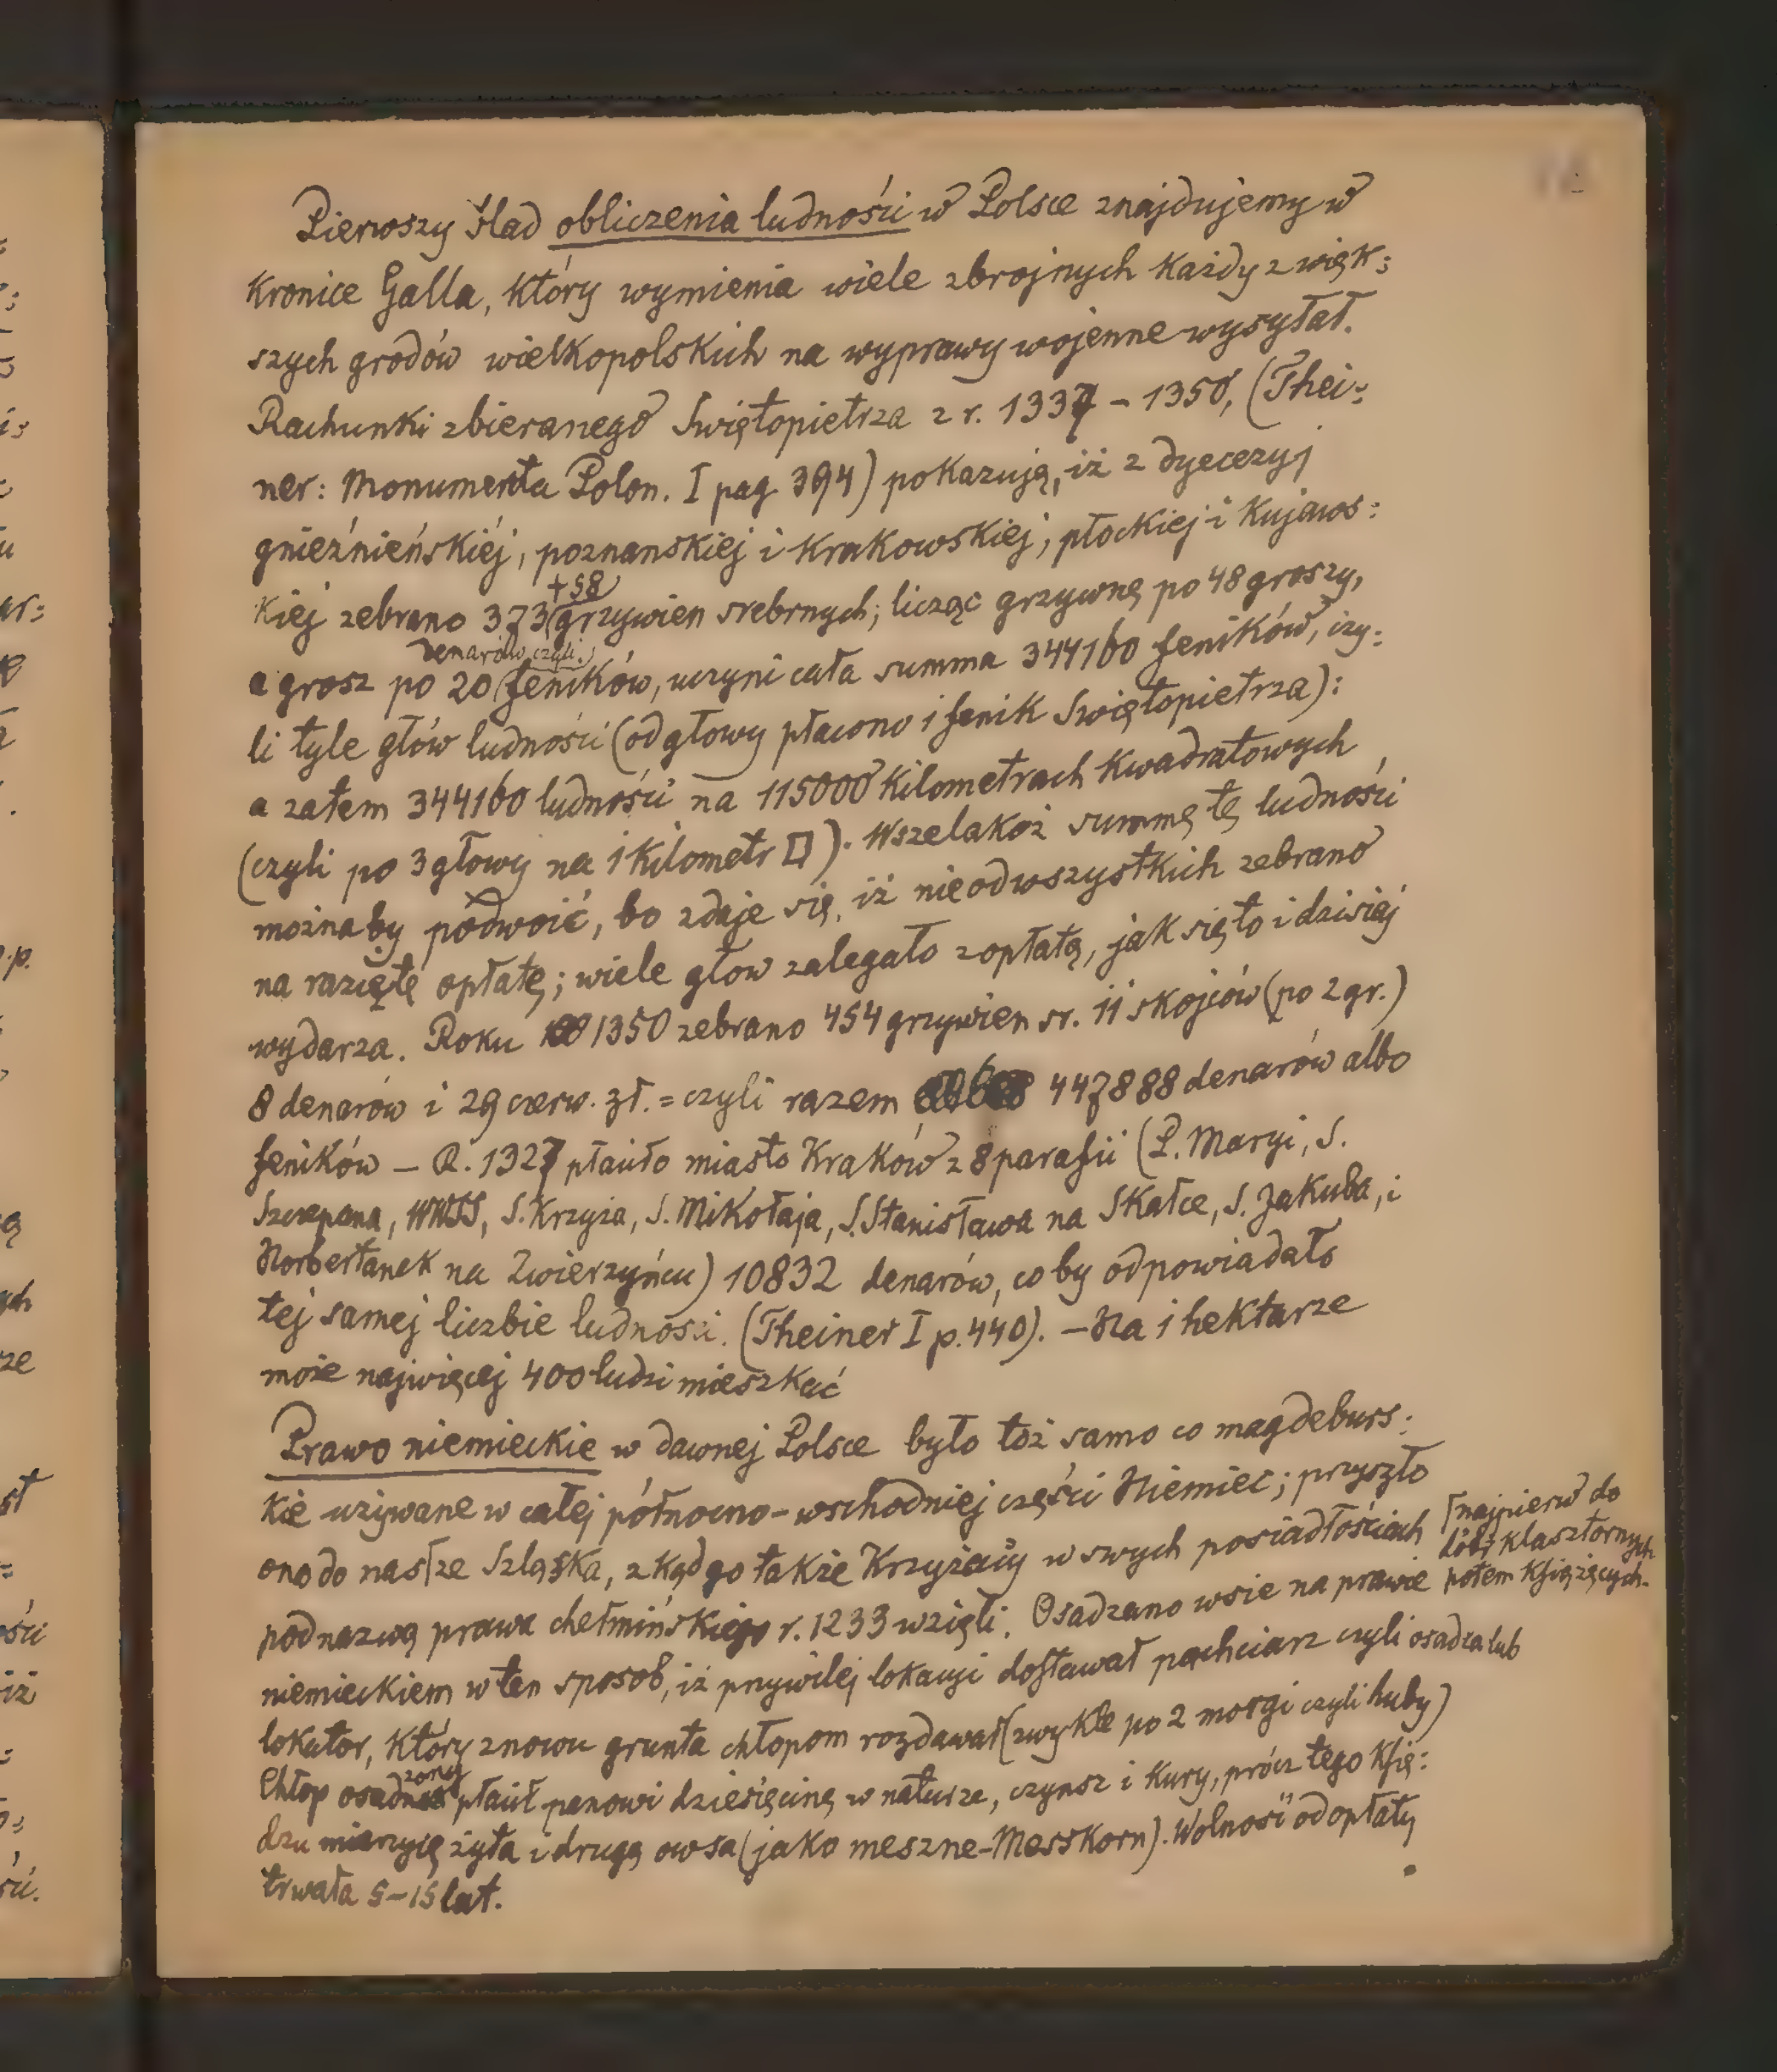 Pierwszy ślad obliczenia ludności w Polsce znajdujemy w
Kronice Galla, który wymienia wiele zbrojnych każdy z więk:
szych grodów wielkopolskich na wyprawy wojenne wysyłał.
Rachunki zbieranego Świętopietrza z r. 1337 – 1350, (Thei:
ner: Monumenta Polon. I pag 394) pokazują, iż z dyecezyj
gnieźnieńskiéj, poznanskiej i Krakowskiej, płockiej i Kujaws:
kiej zebrano 373 grzywien srebrnych; licząc grzywnę po 48 groszy,
+58
a grosz po 20 feników, uczyni cała summa 344160 feników, czy:
denarów czyli
li tyle głów ludności (od głowy płacono 1 fenik Świętopietrza):
a zatem 344160 ludności na 115000 Kilometrach Kwadratowych
(czyli po 3 głowy na 1 Kilometr □). Wszelakoż summę tę ludności
możnaby podwoić, bo zdaje się, iż nie od wszystkich zebrano
na razie tę opłatę; wiele głow zalegało z opłatą, jak się to i dzisiej
wydarza. Roku 1350 zebrano 454 grzywien sr. 11 skojców (po 2 gr.)
8 denarów i 29 czerw. zł. = czyli razem 447888 denarów albo
feników – R. 1327 płaciło miasto Kraków z 8 parafii (P. Maryi, S.
Szczepana, WWSS, S. Krzyża, S. Mikołaja, S. Stanisława na Skałce, S. Jakuba, i
Norbertanek na Zwierzyńcu) 10832 denarów, co by odpowiadało
tej samej liczbie ludności. (Theiner I p. 440). – Na 1 hektarze
może najwięcej 400 ludzi mieszkać
Prawo niemieckie w dawnej Polsce było toż samo co magdeburs:
kie używane w całej północno-wschodniej części Niemiec; przyszło
ono do nas ze Szląska, zkąd go także Krzyżacy w swych posiadłościach
najpierw do
dóbr klasztornych
potem Książęcych.
pod nazwą prawa chełmińskiego r. 1233 wzięli. Osadzano wsie na prawie
niemieckiem w ten sposob, iż przywilej lokacyi dostawał pachciarz czyli osadca lub
lokator, który znowu grunta chłopom rozdawał (zwykle po 2 morgi czyli huby)
Chłop osadzony płacił panowi dziesięcinę w naturze, czynsz i Kury, prócz tego Księ:
dzu miarzycę żyta i drugą owsa (jako meszne-Messkorn). Wolność od opłaty
trwała 5–15 lat.